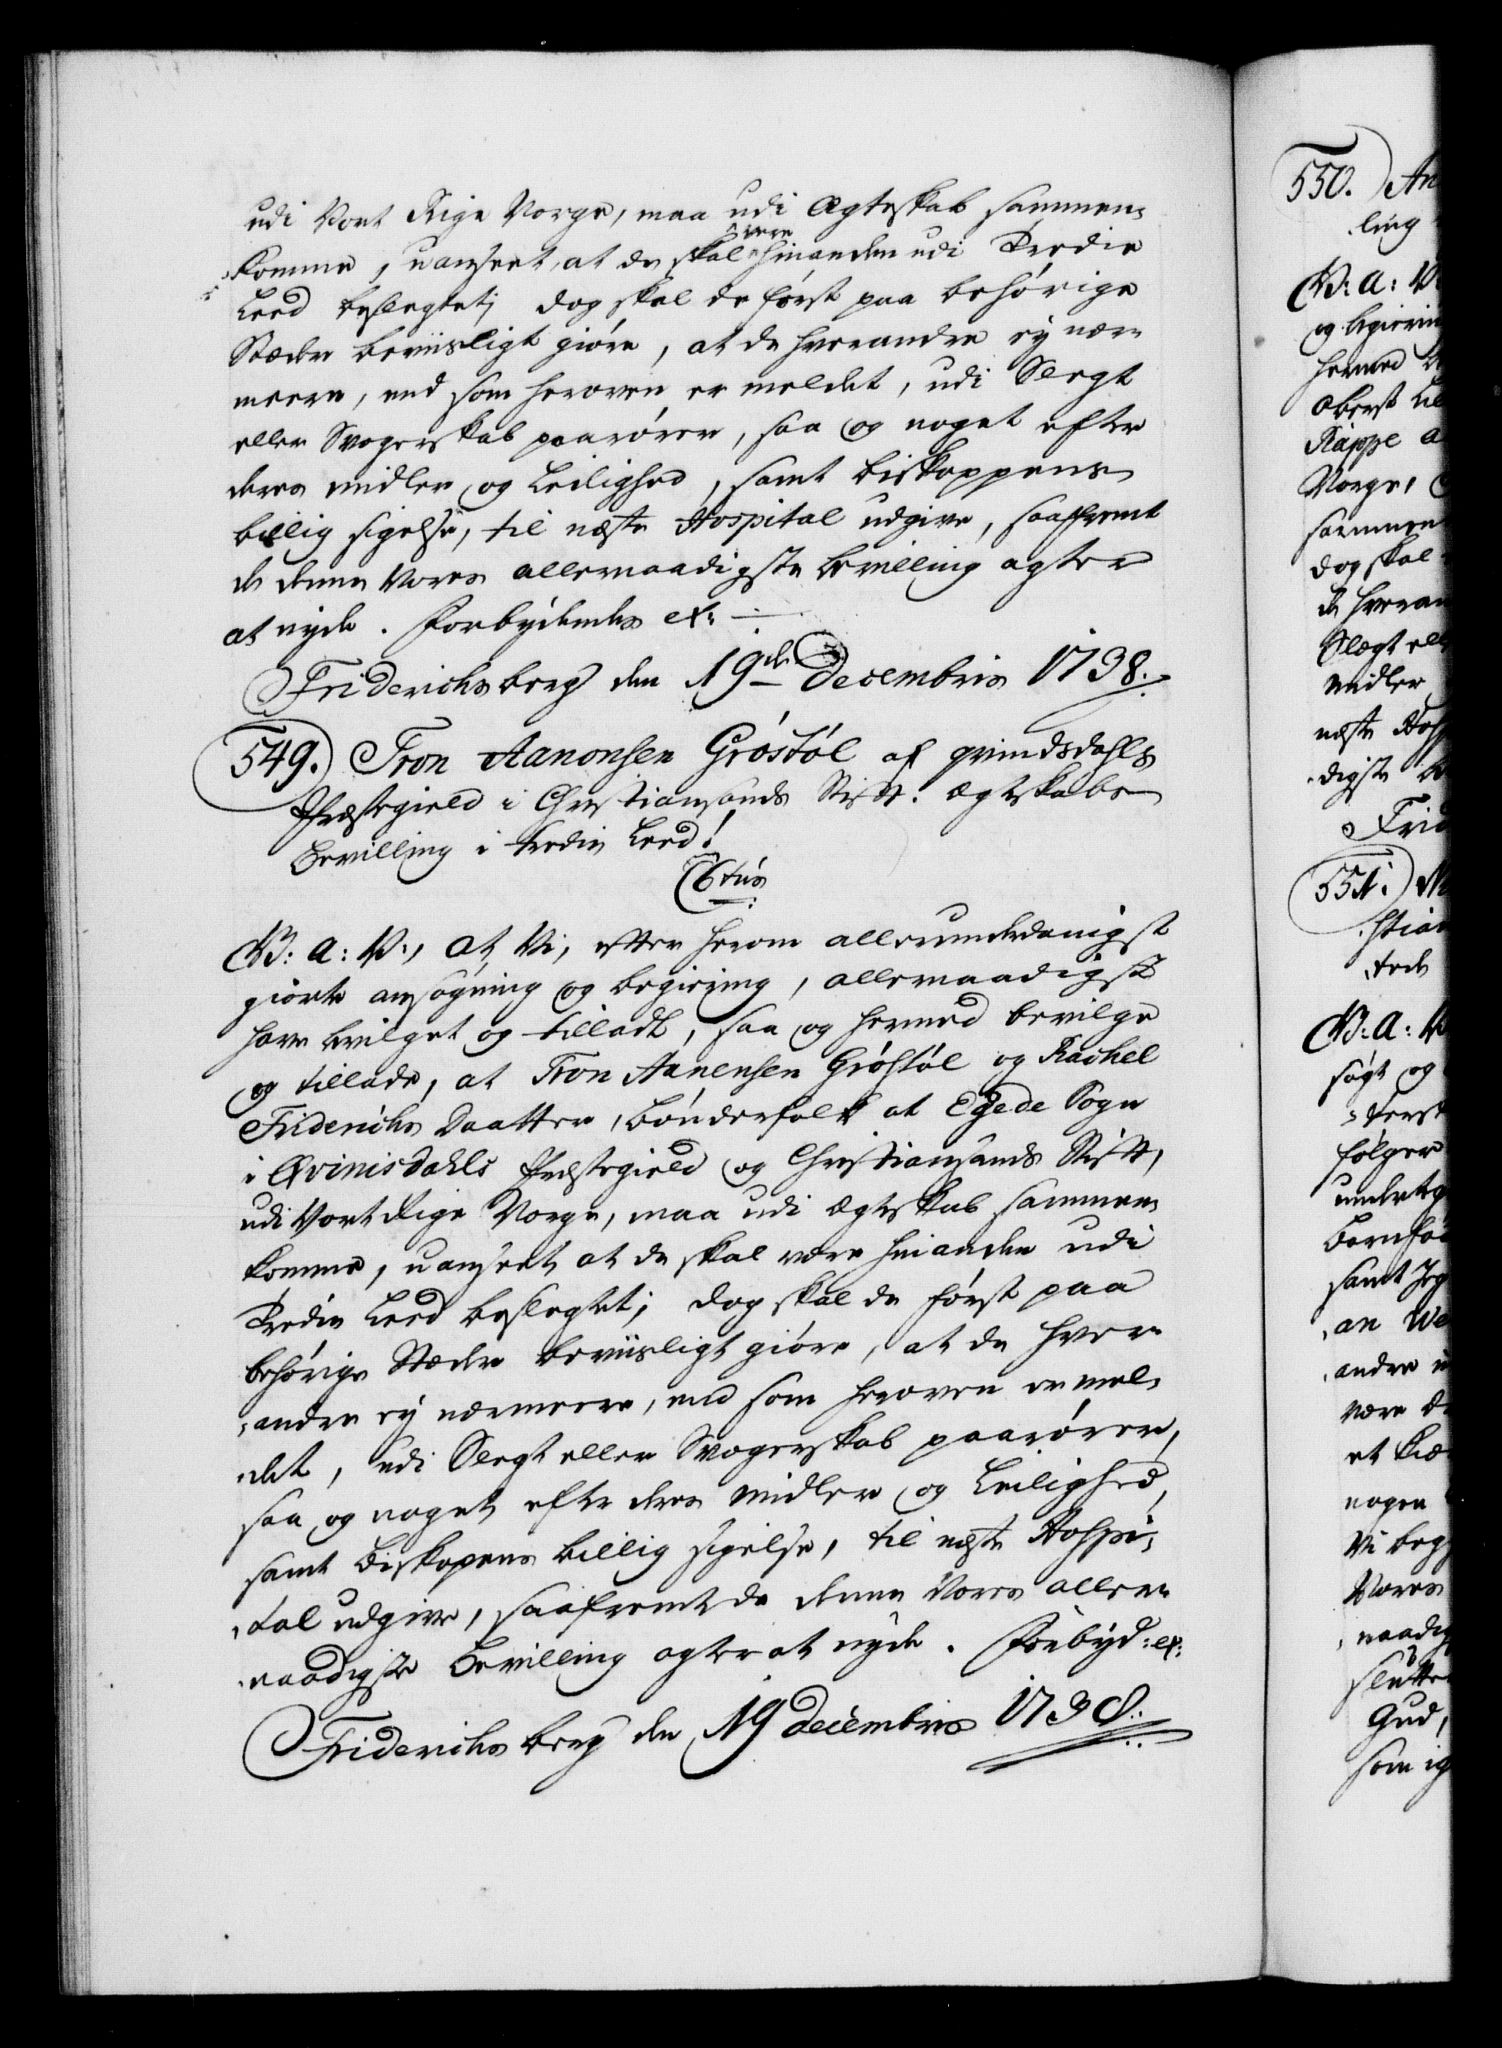 udi Vort Rige Norge, maa udi Ægteskab sammen-
komme, uanseet, at de skal være hinanden udi Tredie
Leed beslegtet; dog skal de først paa behørige
Stæder beviisligt giøre, at de hverandre ey nær-
meere, end som heroven er meldet, udi Slegt
eller Svogerskab paarører, saa og noget efter
deres midler og Leilighed, samt biskoppens
billig sigelse, til næste Hospital udgive, saafremt
de denne Vores allernaadigste bevilling agter
at nyde. Forbydendes etc:
Friderichsberg den 19de Decembris 1738.
549. Tron Aanonsen Grøstøl af qvindsdahls
Præstegield i Christiansands Stift. Ægteskabs
Bevilling i tredie Leed!
C6tus
G: A: V:, At Vi, efter herom allerunderdanigst
giorte ansøgning og begiering, allernaadigst
have bevilget og tilladt, saa og hermed bevilge
og tillade, at Tron Aanensen Grøstøl og Rachel
Friderichs Daatter, bønderfolk at Egede Sogn
i Qvinisdahls Præstegield og Christiansands Stift,
udi Vort Rige Norge, maa udi Ægteskab sammen-
komme, uanseet, at de skal være hinanden udi
Tredie Leed beslegtet; dog skal de først paa
behørige Stæder beviisligt giøre, at de hver-
andre ey nærmeere, end som heroven er mel-
det, udi Slegt eller Svogerskab paarører,
saa og noget efter deres midler og Leilighed,
samt Biskopens billig sigelse, til næste Hospi-
tal udgive, saafremt de denne Vores aller-
naadigste Bevilling agter at nyde. Forbyd: etc:
Friderichsberg den 19 Decembris 1738.
550. An
ling
G: A: V
og begiering
hermed
Oberst
Kappe
Norge,
sammen
dog skal
de hveran
Slægt ell
midler
næste Hosp
digste
Frid
551.
stian
G: A: V
søgt og
følger
samt
an We
andre
være
nogen
Vi beg
Vores
naadig
slutte
Gud,
som ig